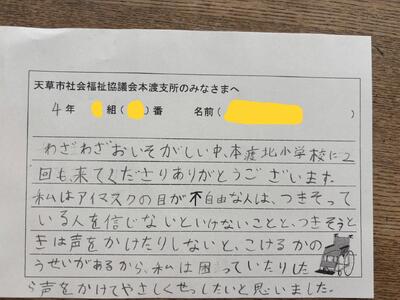 天草市社会福祉協議会本渡支所のみなさまへ
4年 組( )番 名前( )
わざわざおいそがしい中、本渡北小学校に2
回も来てくださりありがとうございます。
私はアイマスクの目が不自由な人は、つきそって
いる人を信じないといけないことと、つきそうと
きは声をかけたりしないと、こけるかの
うせいがあるから、私は困っていたりした
ら声をかけてやさしくせっしたいと思いました。